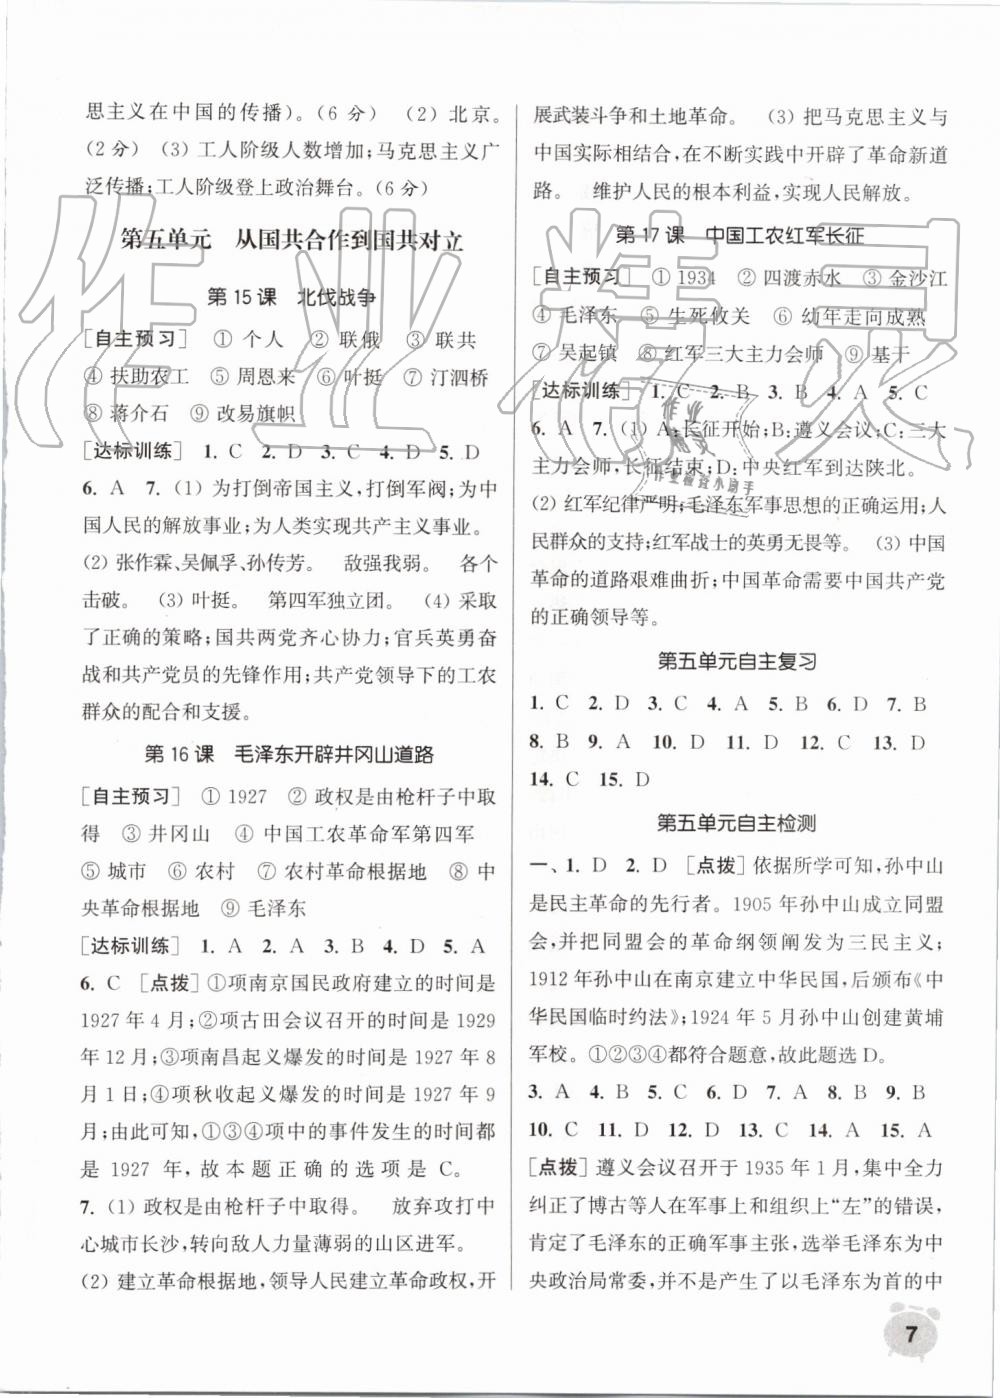 思主义在中国的传播)。(6 分) (2) 北京。
(2 分) (3) 工人阶级人数增加;马克思主义广
泛传播;工人阶级登上政治舞台。(6 分)
第五单元 从国共合作到国共对立
第 15 课 北伐战争
[自主预习] ① 个人 ② 联俄 ③ 联共
④ 扶助农工 ⑤ 周恩来 ⑥ 叶挺 ⑦ 汀泗桥
⑧ 蒋介石 ⑨ 改易旗帜
[达标训练] 1. C 2. D 3. C 4. D 5. D
6. A 7. (1) 为打倒帝国主义,打倒军阀;为中
国人民的解放事业;为人类实现共产主义事业。
(2) 张作霖、吴佩孚、孙传芳。 敌强我弱。 各个
击破。 (3) 叶挺。 第四军独立团。 (4) 采取
了正确的策略;国共两党齐心协力;官兵英勇奋
战和共产党员的先锋作用;共产党领导下的工农
群众的配合和支援。
第 16 课 毛泽东开辟井冈山道路
[自主预习] ① 1927 ② 政权是由枪杆子中取
得 ③ 井冈山 ④ 中国工农革命军第四军
⑤ 城市 ⑥ 农村 ⑦ 农村革命根据地 ⑧ 中
央革命根据地 ⑨ 毛泽东
[达标训练] 1. A 2. A 3. A 4. D 5. A
6. C [点拨] ①项南京国民政府建立的时间是
1927 年 4 月;②项古田会议召开的时间是 1929
年 12 月;③项南昌起义爆发的时间是 1927 年 8
月 1 日;④项秋收起义爆发的时间是 1927 年 9
月;由此可知,①③④项中的事件发生的时间都
是 1927 年,故本题正确的选项是 C。
7. (1) 政权是由枪杆子中取得。 放弃攻打中
心城市长沙,转向敌人力量薄弱的山区进军。
(2) 建立革命根据地,领导人民建立革命政权,开
展武装斗争和土地革命。 (3) 把马克思主义与
中国实际相结合,在不断实践中开辟了革命新道
路。 维护人民的根本利益,实现人民解放。
第 17 课 中国工农红军长征
[自主预习] ① 1934 ② 四渡赤水 ③ 金沙江
④ 毛泽东 ⑤ 生死攸关 ⑥ 幼年走向成熟
⑦ 吴起镇 ⑧ 红军三大主力会师 ⑨ 基干
[达标训练] 1. C 2. B 3. B 4. A 5. C
6. A 7. (1) A:长征开始;B:遵义会议;C:三大
主力会师,长征结束;D:中央红军到达陕北。
(2) 红军纪律严明;毛泽东军事思想的正确运用;人
民群众的支持;红军战士的英勇无畏等。 (3) 中国
革命的道路艰难曲折;中国革命需要中国共产党
的正确领导等。
第五单元自主复习
1. C 2. D 3. C 4. A 5. B 6. D 7. B
8. B 9. A 10. D 11. D 12. C 13. D
14. C 15. D
第五单元自主检测
一、1. D 2. D [点拨] 依据所学可知,孙中山
是民主革命的先行者。1905 年孙中山成立同盟
会,并把同盟会的革命纲领阐发为三民主义;
1912 年孙中山在南京建立中华民国,后颁布《中
华民国临时约法》;1924 年 5 月孙中山创建黄埔
军校。①②③④都符合题意,故此题选 D。
3. A 4. B 5. C 6. D 7. A 8. B 9. B
10. C 11. D 12. D 13. C 14. A 15. A
[点拨] 遵义会议召开于 1935 年 1 月,集中全力
纠正了博古等人在军事上和组织上“左”的错误,
肯定了毛泽东的正确军事主张,选举毛泽东为中
央政治局常委,并不是产生了以毛泽东为首的中
7
作业精灵